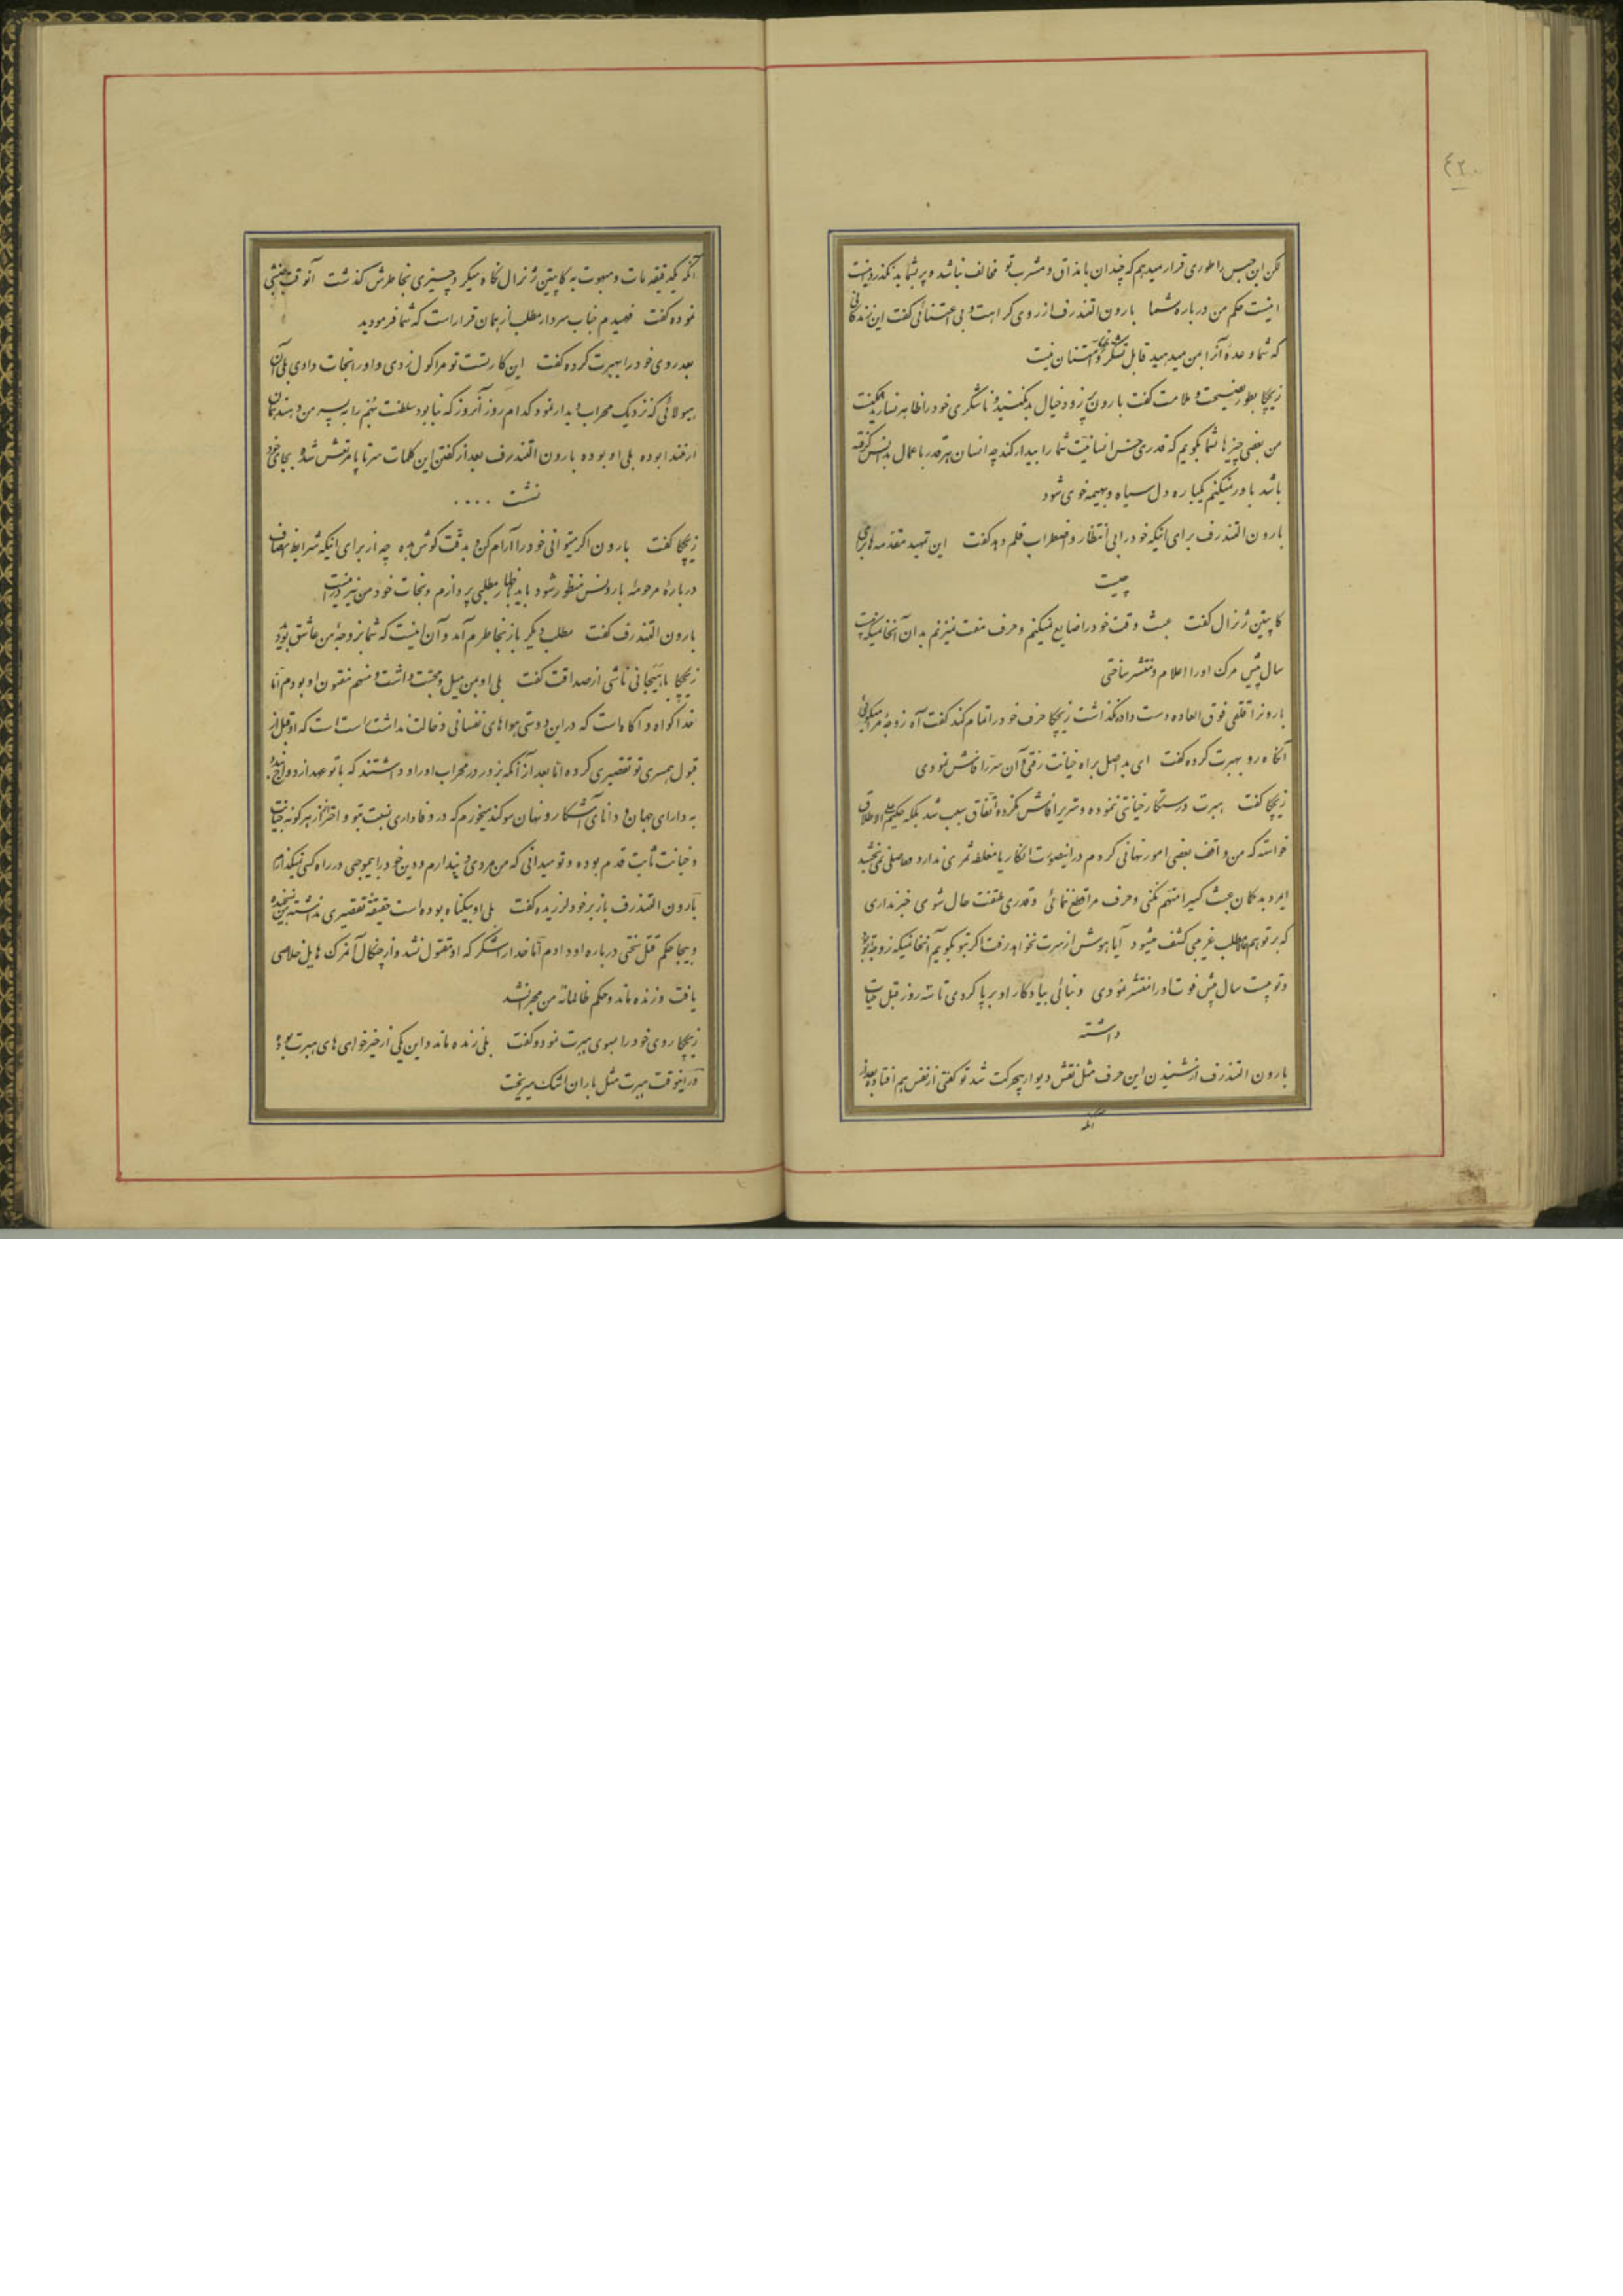 ٤٢٠
لکن این حبس را طوری قرار میدهم که چندان با مذاق و مشرب تو مخالف نباشد و پر بشما بد نگذرد
اینست حکم من درباره شما بارون التندرف از روی کراهت و بی اعتنائی گفت این زندگانی
که شما وعده آنرا بمن میدهید قابل تشکر و امتنان نیست
زیچکا بطور نصیحت و ملامت گفت بارون پر زود خیال بد مکنید و ناشکری خود را ظاهر نسازید
من بعضی چیزها بشما بگویم که قدری حس انسانیت شما را بیدار کند چه انسان هر قدر با عمال بد انس گرفته
باشد باور نمیکنم یکباره دل سیاه و بهیمه خوی شود
بارون التندرف برای اینکه خود را بی انتظار و اضطراب قلم دهد گفت این تمهید مقدمه ها برای
چیست
کاپیتن ژنرال گفت عبث وقت خود را ضایع نمیکنم و حرف مفت نمیزنم بدان آنخانمیکه بیست
سال پیش مرگ او را اعلام و منتشر ساختی
بارونرا قلقی فوق العاده دست داد نگذاشت زیچکا حرف خود را تمام کند گفت آه زوجه مرا میگوئی
آنگاه رو بهبرت کرده گفت ای بد اصل براه خیانت رفتی و آن سر را فاش نمودی
زیچکا گفت هبرت درستکار خیانتی ننموده و سریرا فاش نکرده اتفاق سبب شد بلکه حکیم علی الاطلاق
خواسته که من واقف بعضی امور نهانی گردم در اینصورت انکار یا مغلطه ثمری ندارد و حاصلی نمی بخشد
امید بد گمان عبث کسیرا متهم نکنی و حرف مرا قطع ننمائی و قدری ملتفت حال شوی خبر نداری
که بر تو هم مطالب غریبی کشف میشود آیا هوش از سرت نخواهد رفت اگر بتو بگویم آنخانمیکه زوجه تو بود
و تو بیست سال پیش فوت او را منتشر نمودی و بنائی بیادگار او برپا کردی تا سه روز قبل حیات
داشته
بارون التندرف از شنیدن این حرف مثل نقش دیوار بیحرکت شد تو گفتی از نفس هم افتاد بعد از
آنکه
آنکه یکدقیقه مات و مبهوت به کاپیتن ژنرال نگاه میکرد چیزی بخاطرش گذشت آنوقت جنبشی
نموده گفت فهمیدم جناب سردار مطلب از همان قرار است که شما فرمودید
بعد روی خود را بهبرت کرده گفت این کار تست تو مرا گول زدی و او را نجات دادی بلی آن
هیولائی که نزدیک محراب پدیدار نمود کدام روز آنروز که نیابود سلطنت پنجم را به پسر من دهند همان
ارمنندا بوده بلی او بوده بارون التندرف بعد از گفتن این کلمات سرتا پا مرتعش شد و بجای خود
نشست ....
زیچکا گفت بارون اگر میتوانی خود را آرام کن و بدقت گوش بده چه از برای اینکه شرایط انصاف
درباره مرحومه بارونس منظور شود باید باظهار مطلبی پردازم و نجات خود من نیز در اینست
بارون التندرف گفت مطلب دیگر باز بخاطرم آمد و آن اینست که شما بزوجه من عاشق بودید
زیچکا با هیجانی ناشی از صداقت گفت بلی او بمن میل و محبت داشت و منهم مفتون او بودم اما
خدا گواه و آگاه است که در این دوستی هواهای نفسانی دخالت نداشت راست است که او قبل از
قبول همسری تو تقصیری کرده اما بعد از آنکه بزور در محراب او را واداشتند که با تو عهد ازدواج بندد
به دارای جهان و دانای آشکار و نهان سوگند میخورم که در وفاداری نسبت بتو و احتراز از هر گونه جنایت
و خیانت ثابت قدم بوده و تو میدانی که من مردی دیندارم و دین خود را بیموجبی در راه کسی نمیگذارم
بارون التندرف باز بر خود لرزیده گفت بلی او بیگناه بوده است حقیقة تقصیری نداشته من نسنجیده
و بیجا حکم قتل سختی درباره او دادم اما خدا را شکر که او مقتول نشد و از چنگال آن مرگ هایل خلاصی
یافت و زنده ماند و حکم ظالمانه من مجرا نشد
زیچکا روی خود را بسوی هبرت نمود و گفت بلی زنده ماند و این یکی از خیر خواهی های هبرت بود
در اینوقت هبرت مثل باران اشک میریخت